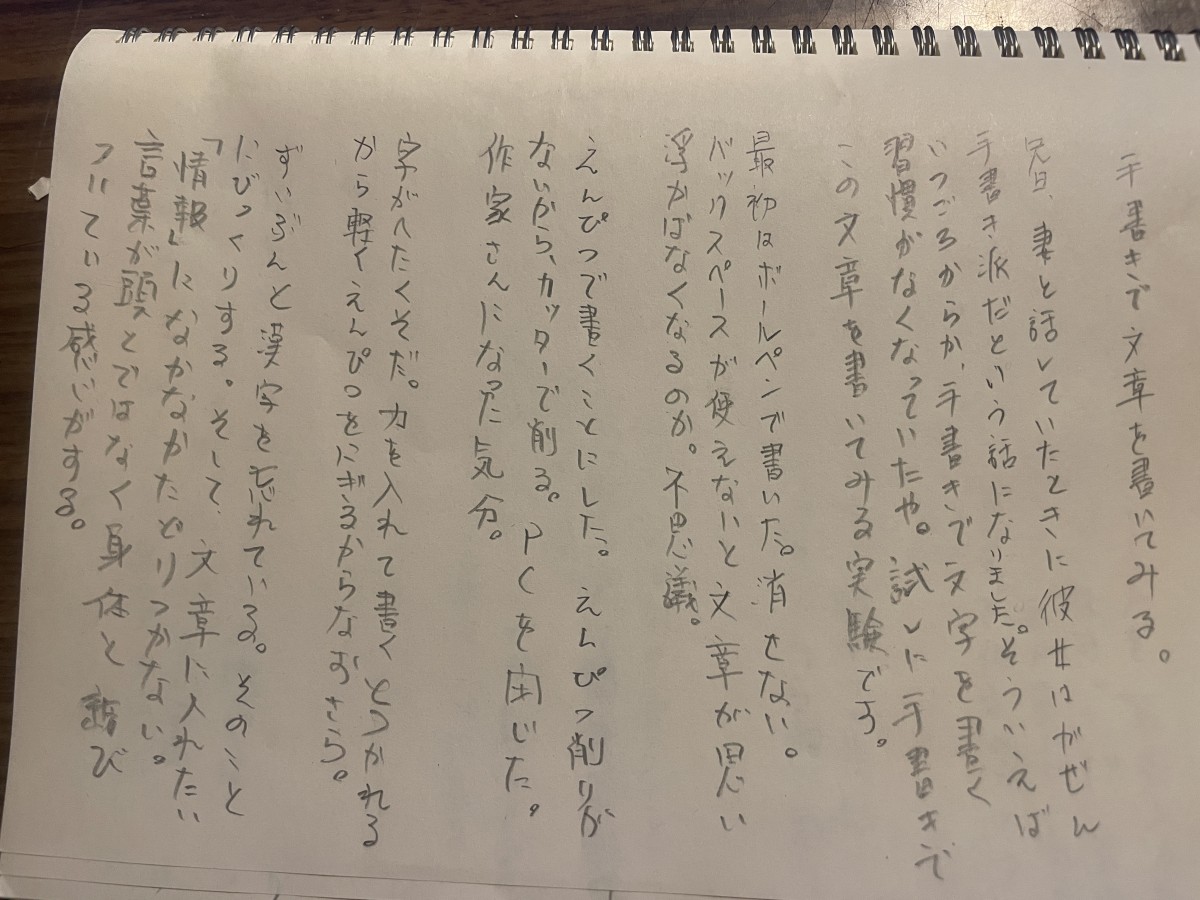 手書きで文章を書いてみる。
先日、妻と話していたときに彼女はがぜん
手書き派だという話になりました。そういえば
いつごろからか、手書きで文字を書く
習慣がなくなっていたや。試しに手書きで
この文章を書いてみる実験です。
最初はボールペンで書いた。消せない。
バックスペースが使えないと文章が思い
浮かばなくなるのか。不思議。
えんぴつで書くことにした。えんぴつ削りが
ないから、カッターで削る。PCを閉じた。
作家さんになった気分。
字がへたくそだ。力を入れて書くとつかれる
から軽くえんぴつをにぎるからなおさら。
ずいぶんと漢字を忘れている。そのこと
にびっくりする。そして、文章に入れたい
「情報」になかなかたどりつかない。
言葉が頭とではなく身体と結び
ついている感じがする。